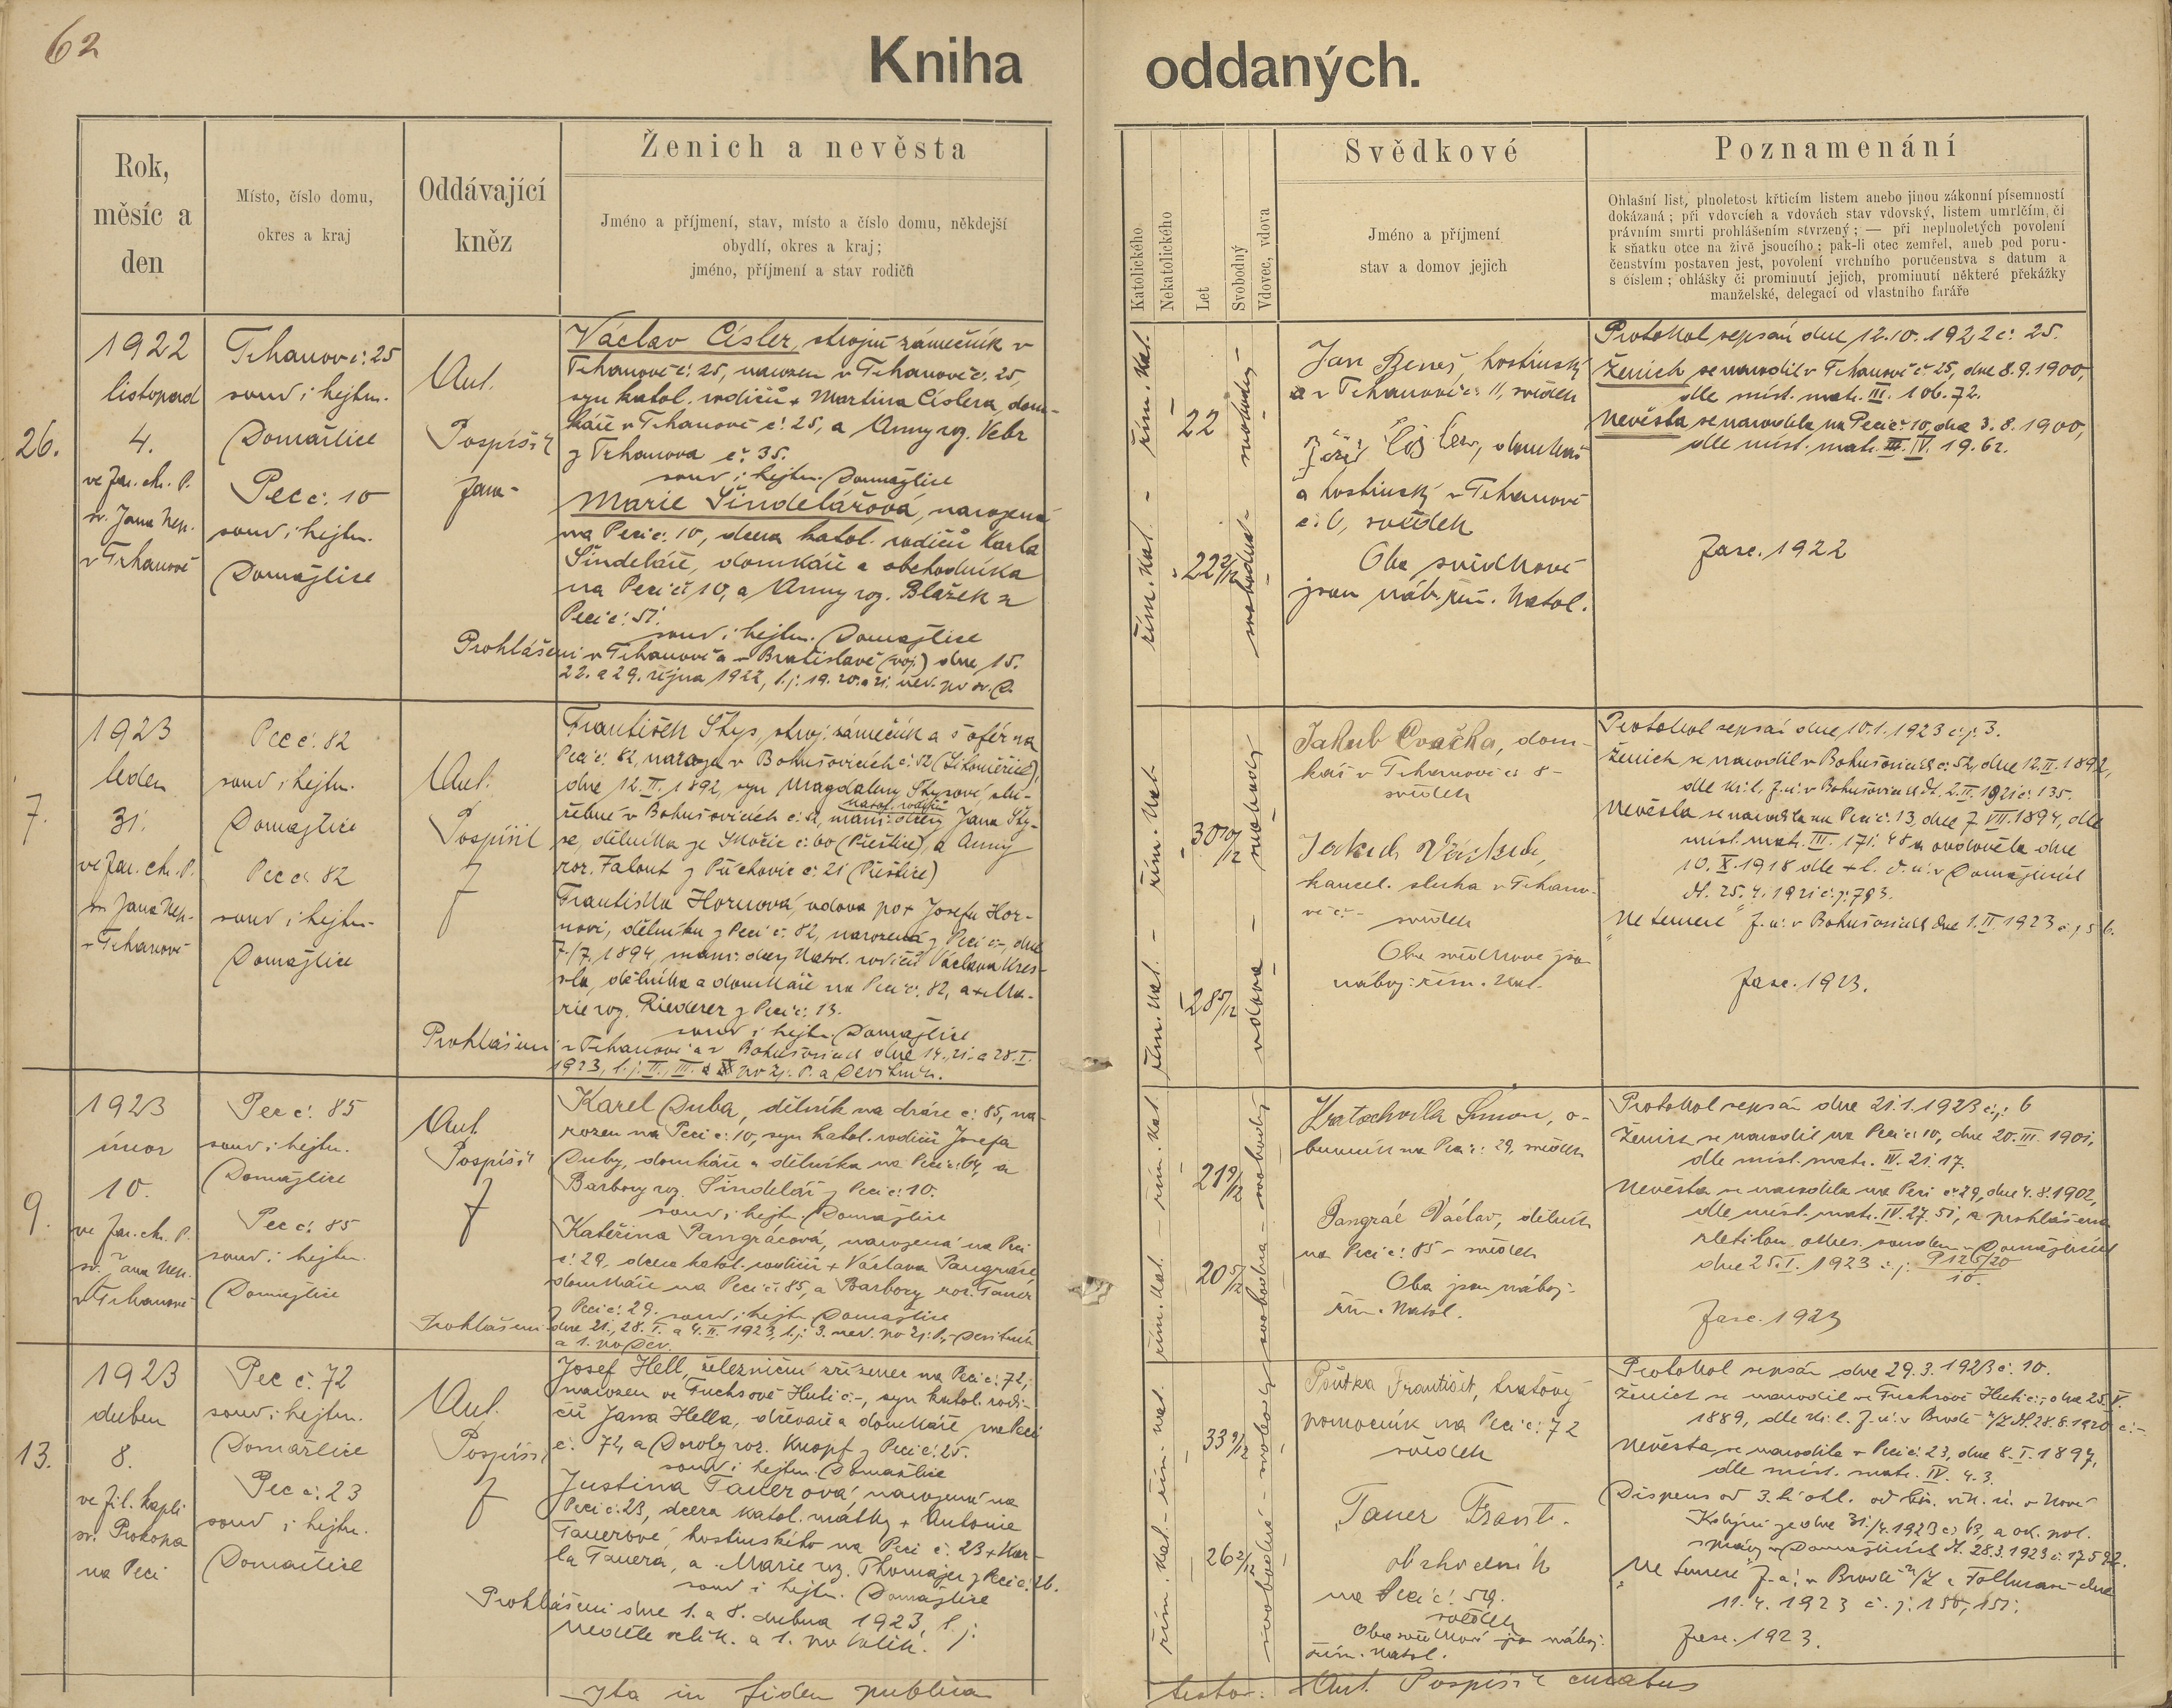 62
Kniha oddaných.
Rok,
měsíc a
den
Místo, číslo domu,
okres a kraj
Oddávající
kněz
Ženich a nevěsta
Jméno a příjmení, stav, místo a číslo domu, někdejší
obydlí, okres a kraj;
jméno, příjmení a stav rodičů
Katolického
Nekatolického
Let
Svobodný
Vdovec, vdova
Svědkové
Jméno a příjmení
stav a domov jejich
Poznamenání
Ohlašní list, plnoletost křticím listem anebo jinou zákonní písemností
dokázaná; při vdovcích a vdovách stav vdovský, listem umrlčím, či
právním smrti prohlášením stvrzený; — při neplnoletých povolení
k sňatku otce na živě jsoucího; pak-li otec zemřel, aneb pod poru-
čenstvím postaven jest, povolení vrchního poručenstva s datum a
s číslem; ohlášky či prominutí jejich, prominutí některé překážky
manželské, delegací od vlastního faráře
26.
1922
listopad
4.
ve far. ch. P.
sv. Jana Nep.
v Trhanově
Trhanov č. 25
soud i hejtm.
Domažlice
Pec č. 10
soud i hejtm.
Domažlice
Ant.
Pospíšil
fara-
Václav Cisler, strojní zámečník v
Trhanově č. 25, narozen v Trhanově č. 25,
syn katol. rodičů + Martina Cislera, dom-
káře v Trhanově č. 25, a Anny roz. Vebr
z Trhanova č. 35.
soud i hejtm. Domažlice
Marie Šindelářová, narozená
na Peci č. 10, dcera katol. rodičů Karla
Šindeláře, domkáře a obchodníka
na Peci č. 10, a Anny roz. Blažek z
Peci č. 51.
soud i hejtm. Domažlice
Prohlášeni v Trhanově a v Bratislavě (voj.) dne 15.
22. a 29. října 1922, t. j. 19. 20. a 21. ned. po sv. D.
řím. kat. -
22
svobodný -
řím. kat.
22 2/12
svobodná -
Jan Beneš, hostinský
a v Trhanově č. 11, svědek
domkář
a hostinský v Trhanově
č. 6, svědek
Oba svědkové
jsou náb. řím. katol.
Protokol sepsán dne 12.10.1922 č. 25.
Ženich se narodil v Trhanově č. 25, dne 8.9.1900,
dle míst. matr. III. 106.72.
Nevěsta se narodila na Peci č. 10, dne 3.8.1900,
dle míst. matr. IV. 19.62.
fasc. 1922
7.
1923
leden
31.
ve far. ch. P.
sv. Jana Nep.
v Trhanově
Pec č. 82
soud i hejtm.
Domažlice
Pec č. 82
soud i hejtm.
Domažlice
Ant.
Pospíšil
f
František Štys, stroj. zámečník a šofér na
Peci č. 82, narozen v Bohušovicích č. 52 (Litoměřice),
dne 12.II.1892, syn Magdaleny Štysové, slu-
žebné v Bohušovicích č. 52, manž. dcery Jana Šty-
katol. rodičů
se, dělníka ze Skočic č. 60 (Přeštice), a Anny
roz. Falout z Příchovic č. 21 (Přeštice)
Františka Hornová, vdova po + Josefu Hor-
novi, dělníku z Peci č. 82, narozená z Peci č. -, dne
7./7. 1894, manž. dcery katol. rodičů Václava Kres-
sla, dělníka a domkáře na Peci č. 82, a + Ma-
rie roz. Riederer z Peci č. 13.
soud i hejtm. Domažlice
Prohlášeni v Trhanově a v Bohušovicích dne 14., 21. a 28.I.
1923, t. j. II., III. a po Zj. P. a Devítník.
řím. kat.
30 10/12
svobodný
řím. kat. -
28 5/12
vdova -
Jakub Cvačka, dom-
kář v Trhanově č. 8 -
svědek
kancel. sluha v Trhano-
vě č. - svědek
Oba svědkové jsou
náboj. řím. kat.
Protokol sepsán dne 10.1.1923 č. j. 3.
Ženich se narodil v Bohušovicích č. 52, dne 12.II.1892,
dle kř. l. f. ú. v Bohušovicích dt. 2.II.1921 č. 135.
Nevěsta se narodila na Peci č. 13, dne 7.VII.1894, dle
míst. matr. III. 171. 48 a ovdověla dne
10.X.1918 dle + l. d. ú. v Domažlicích
dt. 25.4.1921 č. j. 793.
"Ne temere" f. ú. v Bohušovicích dne 1.II.1923 č. j. 56.
fasc. 1923.
9.
1923
únor
10.
ve far. ch. P.
sv. Jana Nep.
v Trhanově
Pec č. 85
soud i hejtm.
Domažlice
Pec č. 85
soud i hejtm.
Domažlice
Ant.
Pospíšil
f
Karel Duba, dělník na dráze č. 85, na-
rozen na Peci č. 10, syn katol. rodičů Josefa
Duby, domkáře a dělníka na Peci č. 64, a
Barbory roz. Šindelář z Peci č. 10.
soud i hejtm. Domažlice
Kateřina Pangrácová, narozená na Peci
č. 29, dcera katol. rodičů + Václava Pangráce
domkáře na Peci č. 85, a Barbory roz. Tauer
z Peci č. 29. soud i hejtm. Domažlice
Prohlášeni dne 21., 28.I. a 4.II.1923, t. j. 3. ned. po Zj. P., Devítník
a 1. po Dev.
řím. kat.
21 9/12
svobodný
řím. kat. -
20 5/12
svobodná
Kratochvíla Šimon, o-
buvník na Peci č. 29, svědek
Pangrác Václav, dělník
na Peci č. 85 - svědek
Oba jsou náboj.
řím. katol.
Protokol sepsán dne 21.1.1923 č. j. 6
Ženich se narodil na Peci č. 10, dne 20.III.1901,
dle míst. matr. IV. 21.17.
Nevěsta se narodila na Peci č. 29, dne 4.8.1902,
dle míst. matr. IV. 27. 51, a prohlášena
zletilou okres. soudem v Domažlicích
dne 25.I.1923 č. j. P 126/20
10.
fasc. 1923
13.
1923
duben
8.
ve fil. kapli
sv. Prokopa
na Peci
Pec č. 72
soud i hejtm.
Domažlice
Pec č. 23
soud i hejtm.
Domažlice
Ant.
Pospíšil
f
Josef Hell, železniční zřízenec na Peci č. 72,
narozen ve Fuchsově Huti č. -, syn katol. rodi-
čů Jana Hella, dřevaře a domkáře na Peci
č. 72, a Doroty roz. Knopf z Peci č. 25.
soud i hejtm. Domažlice
Justina Tauerová, narozená na
Peci č. 23, dcera katol. matky + Antonie
Tauerové, hostinského na Peci č. 23 + Kar-
la Tauera, a Marie roz. Thomajer z Peci č. 26.
soud i hejtm. Domažlice
Prohlášeni dne 1. a 8. dubna 1923, t. j.
Neděle velik. a 1. po velik.
řím. kat.
33 9/12
svobodný
řím. kat. -
26 2/12
svobodná -
František, traťový
pomocník na Peci č. 72
svědek
Tauer Frant.
obchodník
na Peci č. 59.
svědek
Oba svědkové jsou náboj.
řím. katol.
Protokol sepsán dne 29.3.1923 č. 10.
Ženich se narodil ve Fuchsově Huti č. -, dne 25.V.
1889, dle kř. l. f. ú. v Brodě n/L dt. 28.8.1920 č. -
Nevěsta se narodila v Peci č. 23, dne 8.I.1897,
dle míst. matr. IV. 4.3.
Dispens od 3. tí ohl. od bis. vik. ú. v Nové
Kdyni ze dne 31./3.1923 č. 63, a ok. pol.
správy v Domažlicích dt. 28.3.1923 č. 17592.
"Ne temere" f. ú. v Brodě n/L a Follmavě dne
11.4.1923 č. j. 150, 151.
fasc. 1923.
Ita in fidem publicam
testor: Ant. Pospíšil curatus